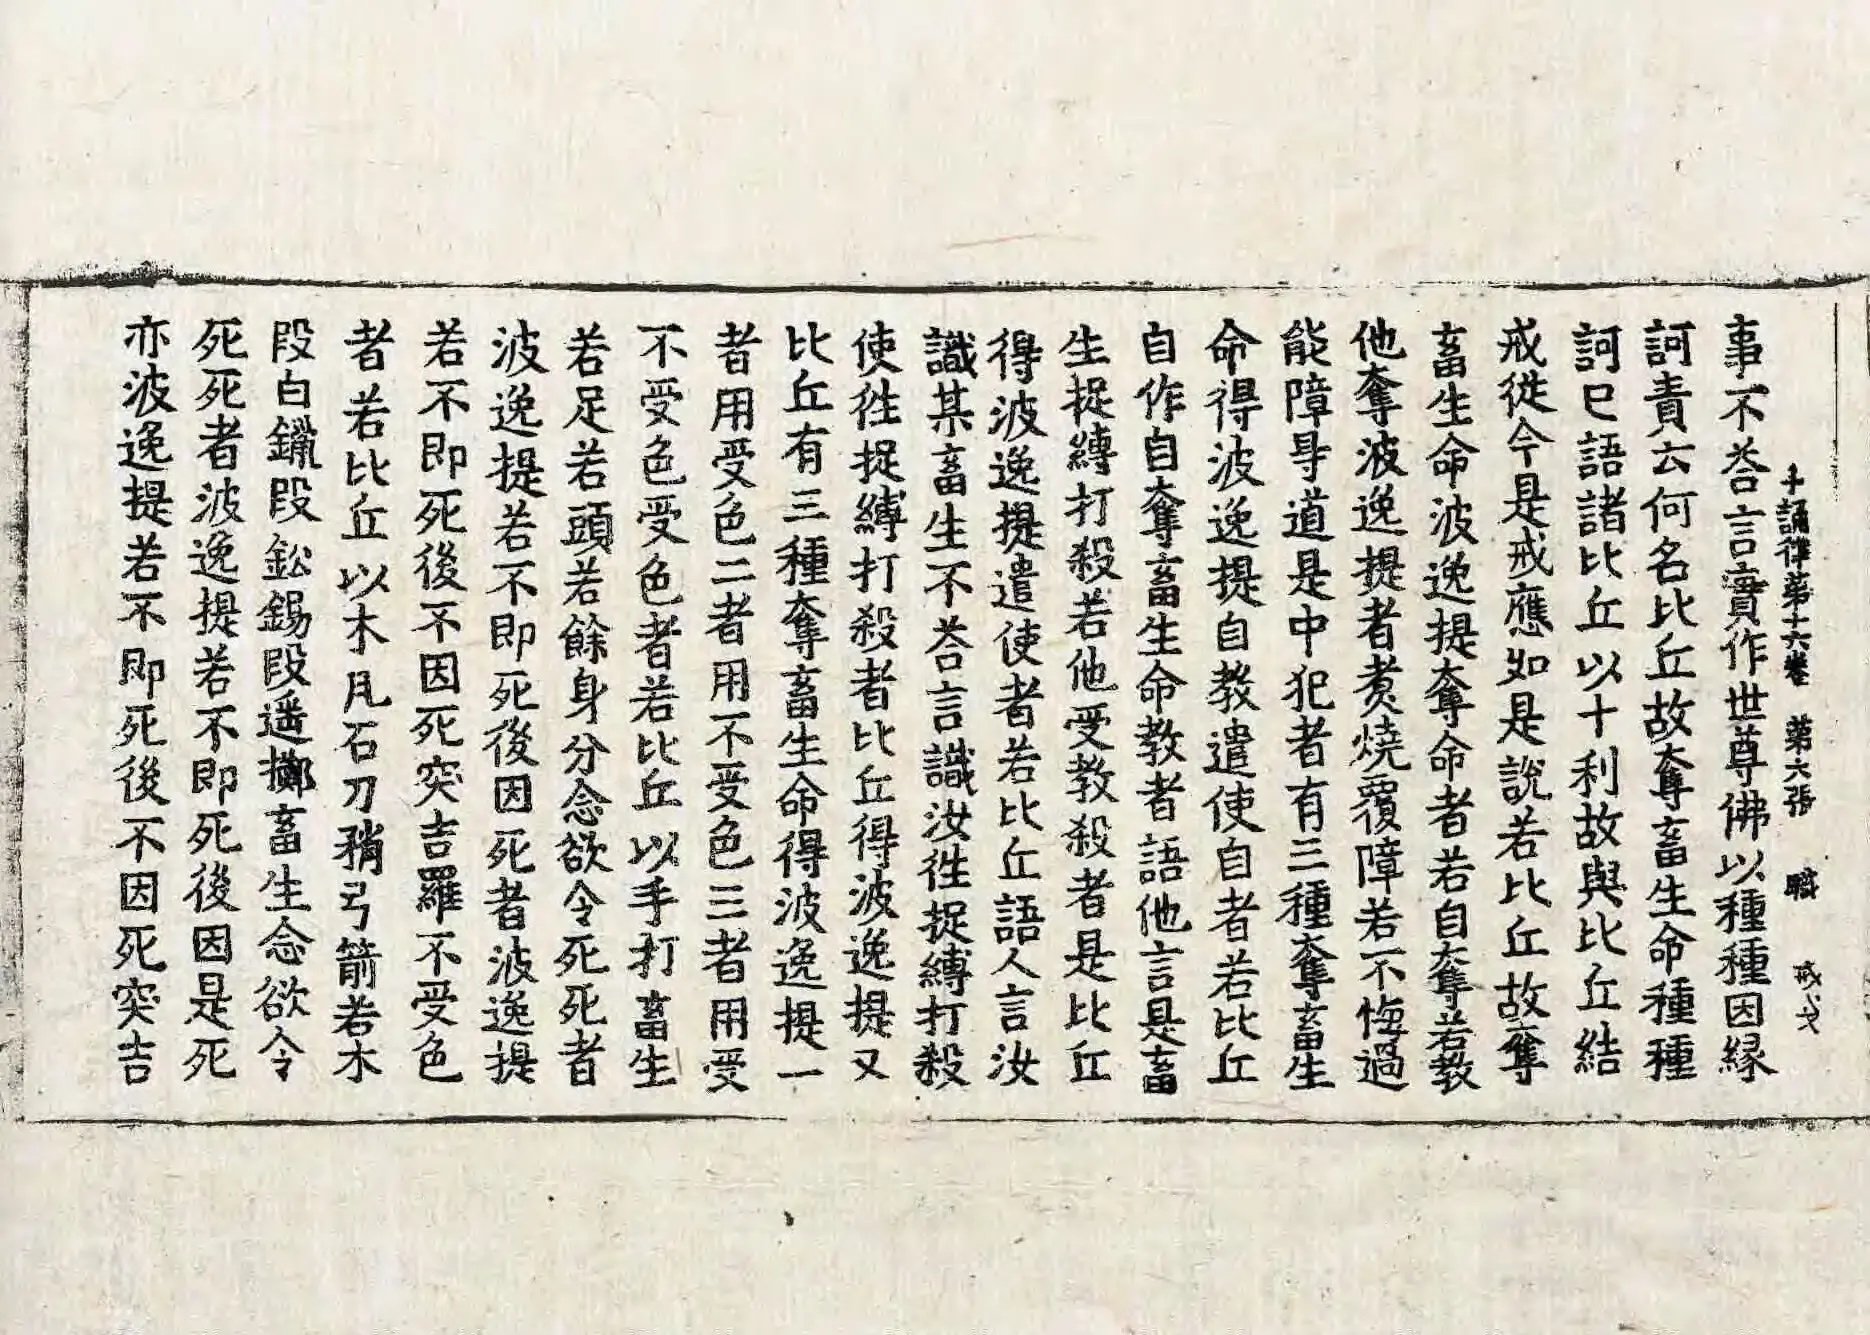 十誦律第十六卷 第六張 職 戒戈
事不荅言實作世尊佛以種種因緣
訶責云何名比丘故奪畜生命種種
訶已語諸比丘以十利故與比丘結
戒從今是戒應如是說若比丘故奪
畜生命波逸提奪命者若自奪若教
他奪波逸提者煑燒覆障若不悔過
能障㝵道是中犯者有三種奪畜生
命得波逸提自教遣使自者若比丘
自作自奪畜生命教者語他言是畜
生捉縛打殺若他受教殺者是比丘
得波逸提遣使者若比丘語人言汝
識某畜生不荅言識汝徃捉縛打殺
使徃捉縛打殺者比丘得波逸提又
比丘有三種奪畜生命得波逸提一
者用受色二者用不受色三者用受
不受色受色者若比丘以手打畜生
若足若頭若餘身分念欲令死死者
波逸提若不即死後因死者波逸提
若不即死後不因死突吉羅不受色
者若比丘以木凡石刀矟弓箭若木
段白鑞段鈆錫段遥擲畜生念欲令
死死者波逸提若不即死後因是死
亦波逸提若不即死後不因死突吉